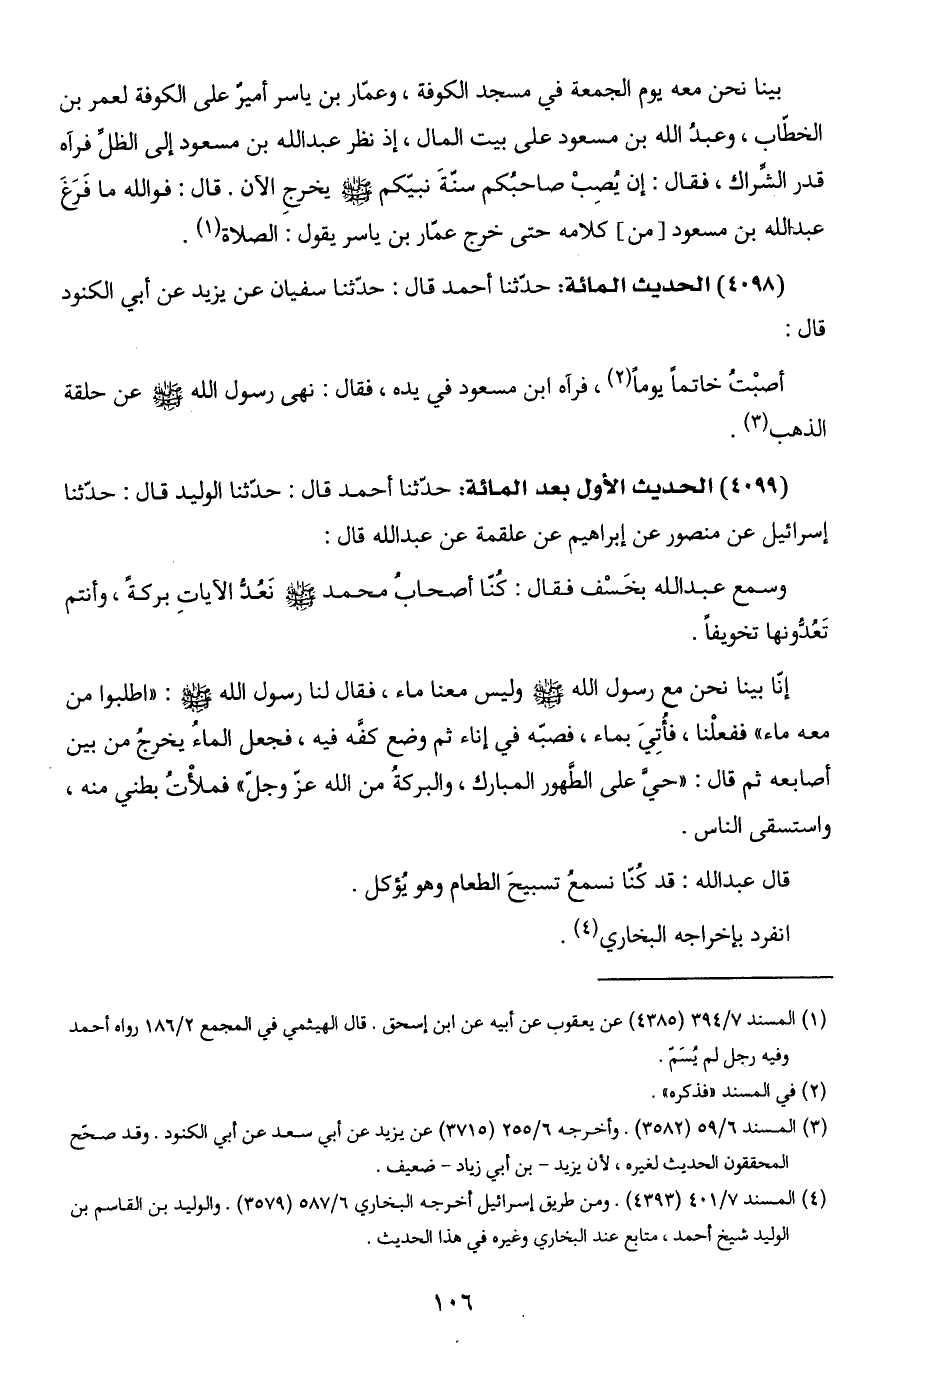 بينا نحن معه يوم الجمعة في مسجد الكوفة ، وعمّار بن ياسر أميرٌ على الكوفة لعمر بن
الخطّاب ، وعبدُ الله بن مسعود على بيت المال ، إذ نظر عبدالله بن مسعود إلى الظلِّ فرآه
قدر الشِّراك ، فقال : إن يُصِبْ صاحبُكم سنّةَ نبيّكم ﷺ يخرجِ الآن . قال : فوالله ما فَرَغَ
عبدالله بن مسعود [من] كلامه حتى خرج عمّار بن ياسر يقول : الصلاة(١) .
(٤٠٩٨) الحديث المائة: حدّثنا أحمد قال : حدّثنا سفيان عن يزيد عن أبي الكنود
قال :
أصبْتُ خاتماً يوماً(٢) ، فرآه ابن مسعود في يده ، فقال : نهى رسول الله ﷺ عن حلقة
الذهب(٣) .
(٤٠٩٩) الحديث الأول بعد المائة: حدّثنا أحمد قال : حدّثنا الوليد قال : حدّثنا
إسرائيل عن منصور عن إبراهيم عن علقمة عن عبدالله قال :
وسمع عبدالله بخَسْف فقال : كُنّا أصحابُ محمد ﷺ نَعُدُّ الآياتِ بركةً ، وأنتم
تَعُدُّونها تخويفاً .
إنّا بينا نحن مع رسول الله ﷺ وليس معنا ماء ، فقال لنا رسول الله ﷺ : «اطلبوا من
معه ماء» ففعلْنا ، فأُتِيَ بماء ، فصبّه في إناء ثم وضع كفَّه فيه ، فجعل الماءُ يخرجُ من بين
أصابعه ثم قال : «حيَّ على الطَّهور المبارك ، والبركةُ من الله عزّ وجلّ» فملأْتُ بطني منه ،
واستسقى الناس .
قال عبدالله : قد كُنّا نسمعُ تسبيحَ الطعام وهو يُؤكل .
انفرد بإخراجه البخاري(٤) .
(١) المسند ٣٩٤/٧ (٤٣٨٥) عن يعقوب عن أبيه عن ابن إسحق . قال الهيثمي في المجمع ١٨٦/٢ رواه أحمد
وفيه رجل لم يُسَمّ .
(٢) في المسند «فذكره» .
(٣) المسند ٥٩/٦ (٣٥٨٢) . وأخرجه ٢٥٥/٦ (٣٧١٥) عن يزيد عن أبي سعد عن أبي الكنود . وقد صحّح
المحققون الحديث لغيره ، لأن يزيد - بن أبي زياد - ضعيف .
(٤) المسند ٤٠١/٧ (٤٣٩٣) . ومن طريق إسرائيل أخرجه البخاري ٥٨٧/٦ (٣٥٧٩) . والوليد بن القاسم بن
الوليد شيخ أحمد ، متابع عند البخاري وغيره في هذا الحديث .
١٠٦